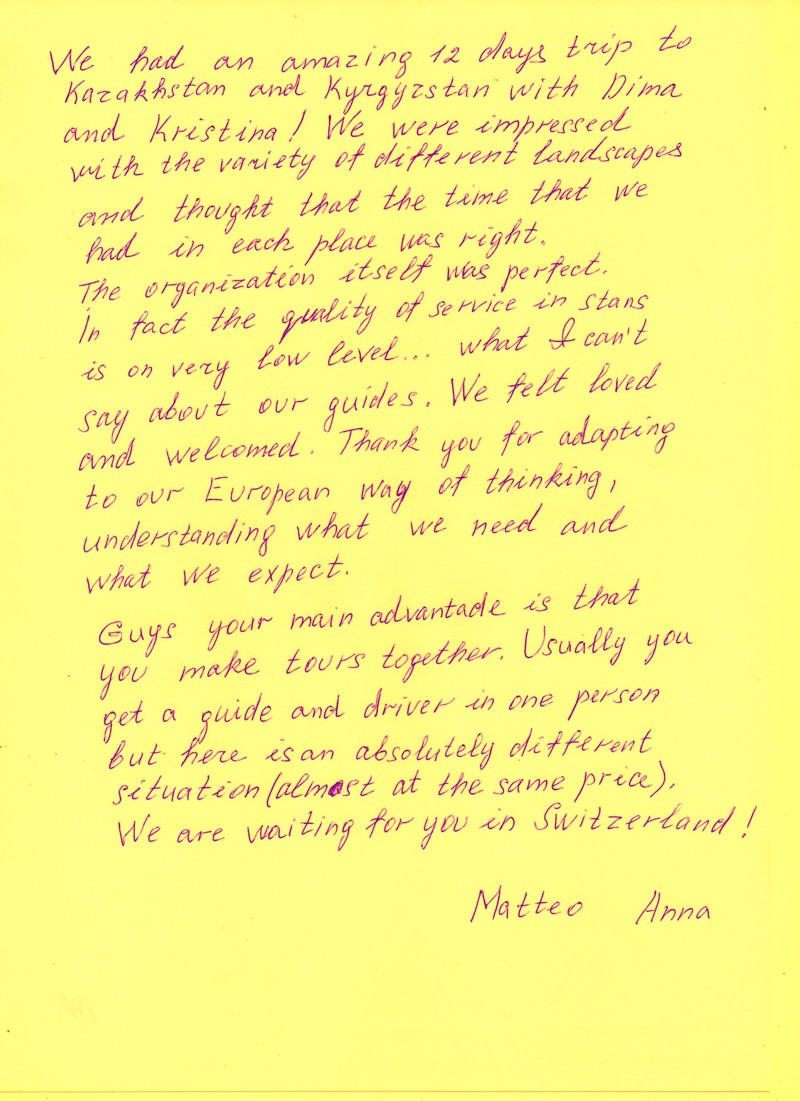 We had an amazing 12 days trip to
Kazakhstan and Kyrgyzstan with Dima
and Kristina! We were impressed
with the variety of different landscapes
and thought that the time that we
had in each place was right.
The organization itself was perfect.
In fact the quality of service in stans
is on very low level... what I can't
say about our guides. We felt loved
and welcomed. Thank you for adapting
to our European way of thinking,
understanding what we need and
what we expect.
Guys your main advantade is that
you make tours together. Usually you
get a guide and driver in one person
but here is an absolutely different
situation (almost at the same price).
We are waiting for you in Switzerland!
Matteo Anna